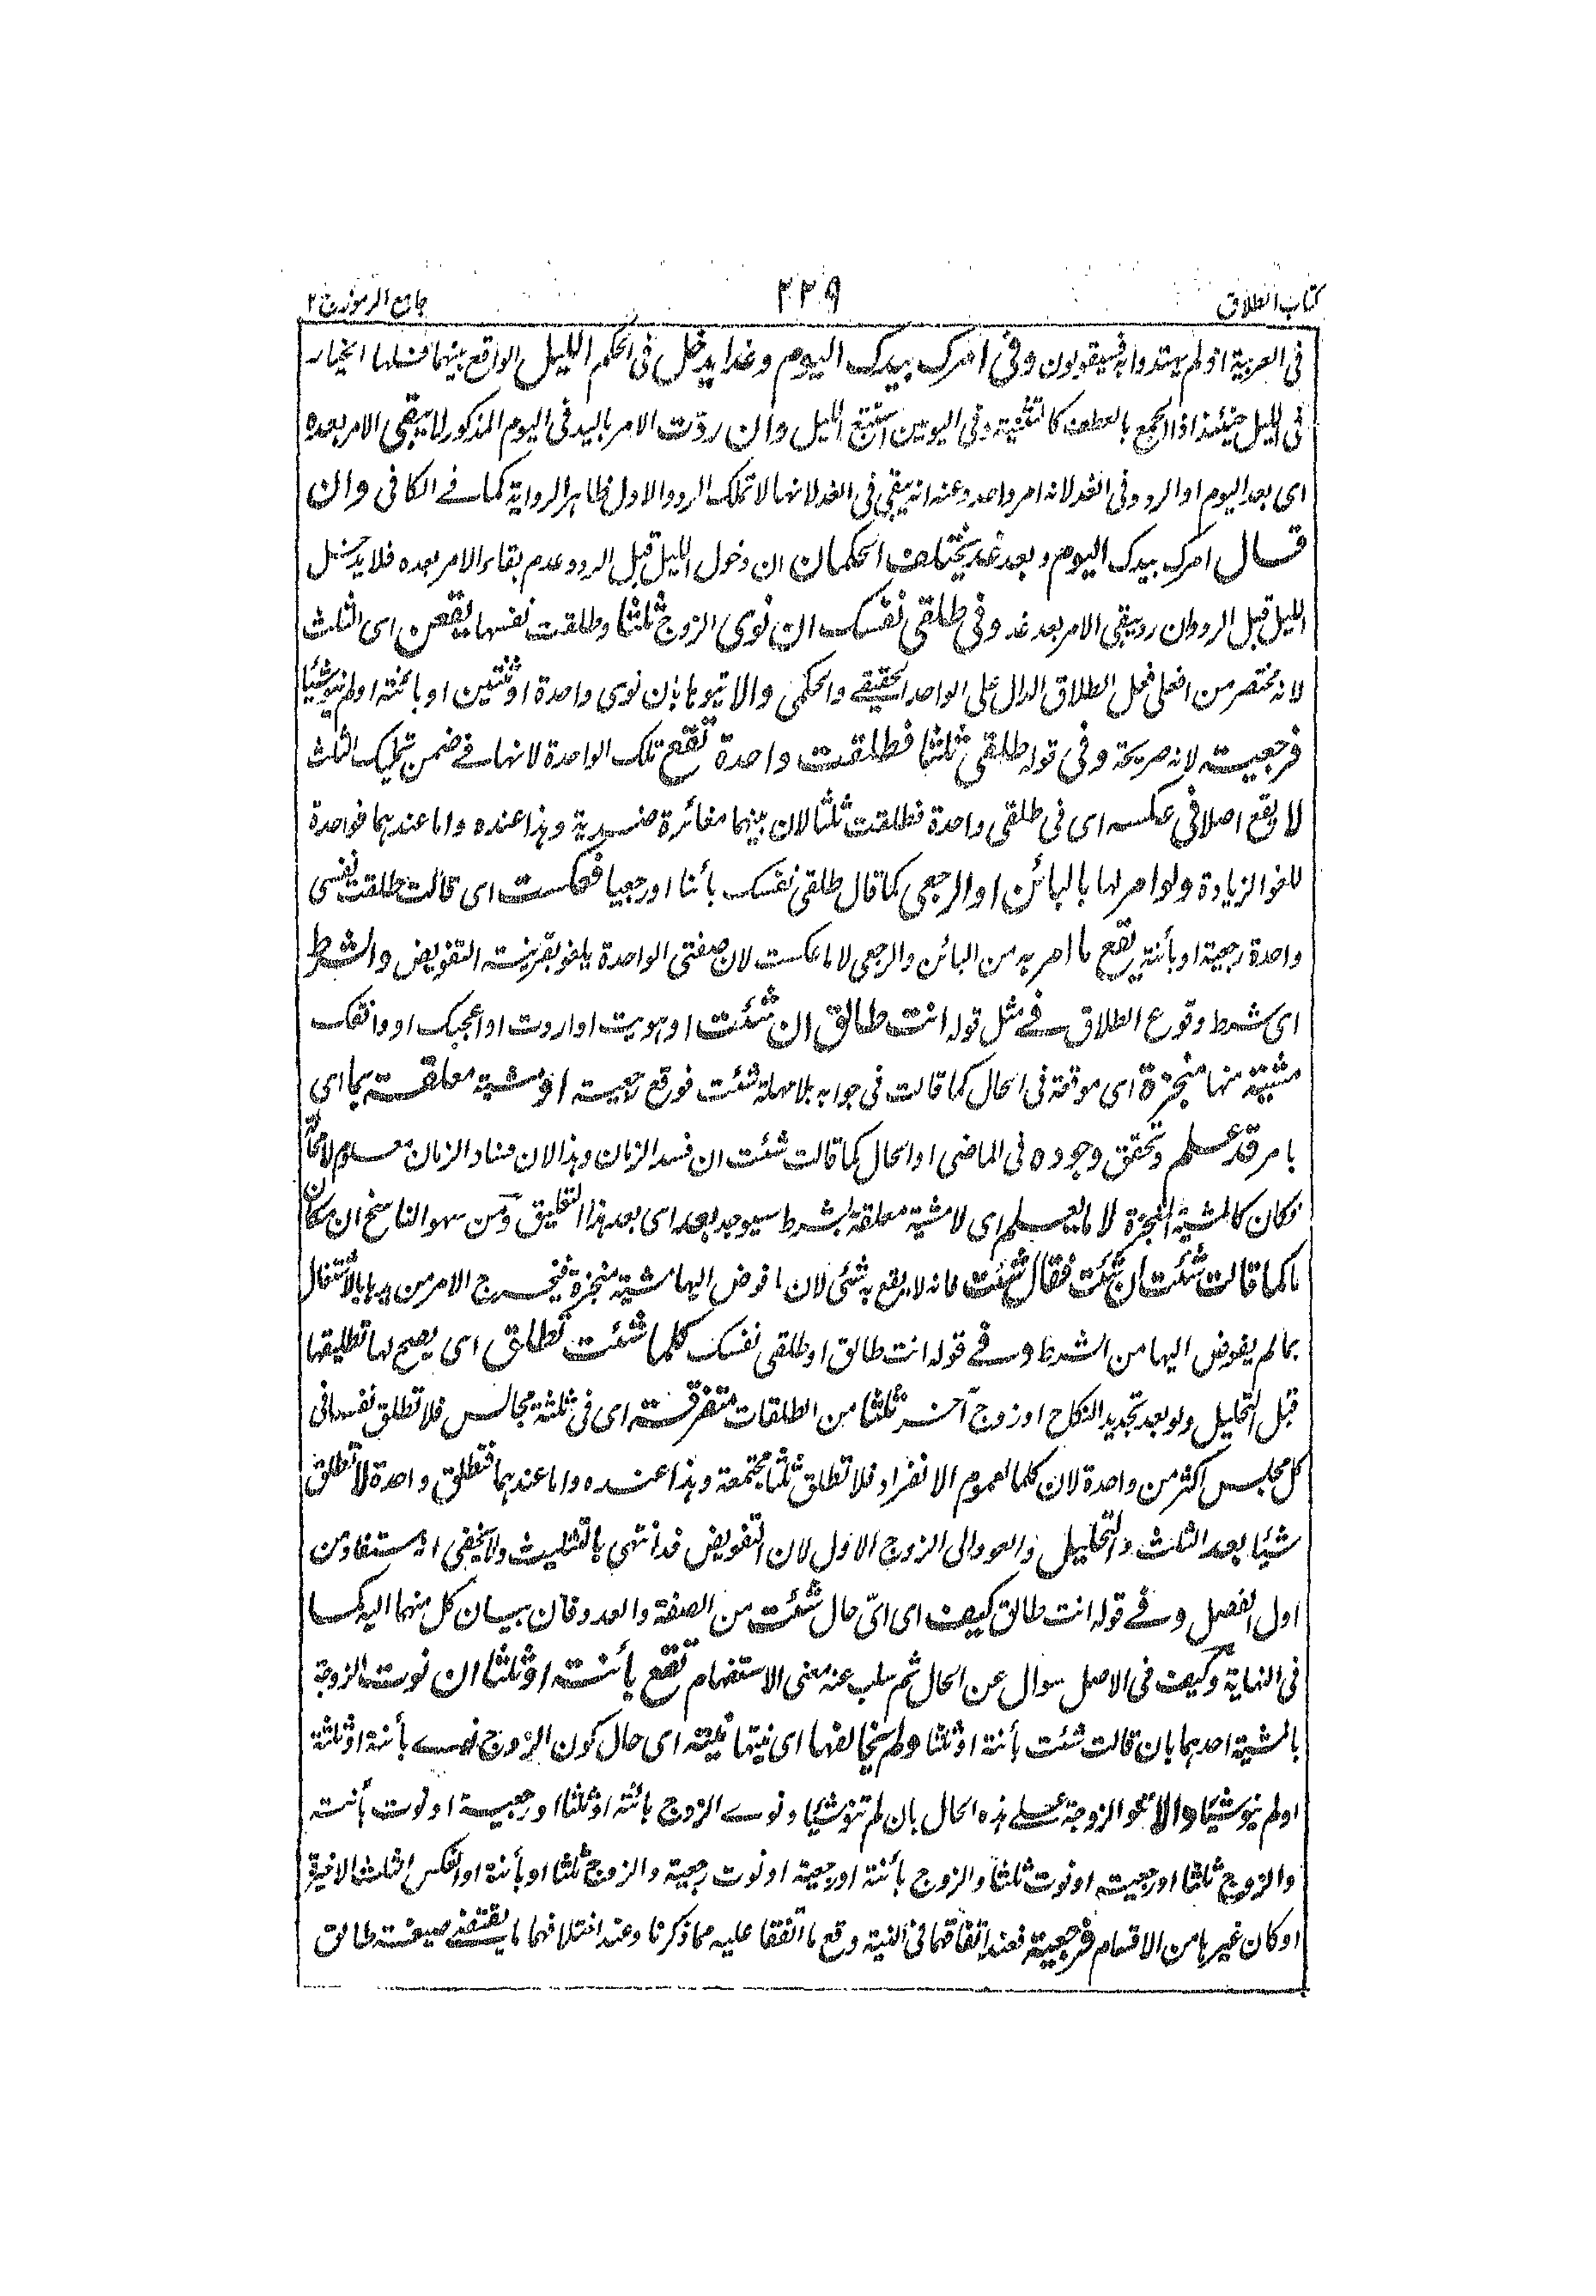 كتاب الطلاق
٢٢٩
جامع الرموز ج ٢
فى العربية اذ لم يهتدوا به فسيقولون وفى امرك بيدك اليوم وغدا يدخل فى الحكم الليل الواقع بينهما فلها الخيار
فى الليل حينئذ اذ الجمع بالعطف كالتثنية وفى اليومين استتبع الليل وان ردّت الامر باليد فى اليوم المذكور لا يبقى الامر بعده
اى بعد اليوم او الرد وفى الغد لانه امر واحد وعنه انه يبقى فى الغد لانها لا تملك الرد والاول ظاهر الرواية كما فے الكافى وان
قال امرك بيدك اليوم وبعد غد يختلف الحكمان ان دخول الليل قبل الرد وعدم بقاء الامر بعده فلا يدخل
الليل قبل الرد وان رد يبقى الامر بعد غد وفى طلقى نفسك ان نوى الزوج ثلثا وطلقت نفسها يقعن اى الثلث
لانه مختصر من افعلى فعل الطلاق الدال على الواحد الحقيقے والحكمى والا ينوها بان نوى واحدة او ثنتين او بائنة او لم ينو شيئا
فرجعية لانه صريحة وفى قوله طلقى ثلثا فطلقت واحدة تقع تلك الواحدة لانها فے ضمن تمليك الثلث
لا يقع اصلا فى عكسه اى فى طلقى واحدة فطلقت ثلثا لان بينهما مغائرة ضدية وهذا عنده واما عندهما فواحدة
للغو الزيادة ولو امر لها بالبائن او الرجعى كما قال طلقى نفسك بائنا او رجعيا فعكست اى قالت طلقت نفسى
واحدة رجعية او بأنتة يقع ما امر به من البائن والرجعى لا ما عكست لان صفتى الواحدة يلغو بقرينة التفويض والشرط
اى شرط وقوع الطلاق فے مثل قوله انت طالق ان شئت او هويت او اردت او اعجبك او وافقك
مشيّة منها منجزة اى موقعة فى الحال كما قالت فى جوابه بلا مهلة شئت فوقع رجعية او مشية معلقة بما اى
بامر قد علم وتحقق وجوده فى الماضى او الحال كما قالت شئت ان فسد الزمان وهذا لان فساد الزمان معلوم لا محالة
فكان كالمشية المنجزة لا ما يعلم اى لا مشية معلقة بشرط سيوجد بعد اى بعد هذا التعليق ومن سهو الناسخ ان مكان
ما كما قالت شئت ان شئت فقال شئت فانه لا يقع به شئ لان ما فوض اليها مشية منجزة فيخرج الامر من يدها بالاشتغال
بما لم يفوض اليها من الشرط وفے قوله انت طالق او طلقى نفسك كلما شئت تطلق اى يصح لها تطليقها
قبل التحليل ولو بعد تجديد النكاح او زوج آخر ثلثا من الطلقات متفرقة اى فى ثلثة مجالس فلا تطلق نفسها فى
كل مجلس اكثر من واحدة لان كلما لعموم الانفراد فلا تطلق ثلثا مجتمعة وهذا عنده واما عندهما فتطلق واحدة لا تطلق
شيئا بعد الثلث والتحليل والعود الى الزوج الاول لان التفويض قد انتهى بالتثليث ولا يخفى انه مستفاد من
اول الفصل وفے قوله انت طالق كيف اى اىّ حال شئت من الصفة والعدد فان بيان كل منهما اليه كما
فى النهاية وكيف فى الاصل سوال عن الحال ثم سلب عنه معنى الاستفهام تقع بائنة او ثلثا ان نوت الزوجة
بالمشية احدهما بان قالت شئت بأنتة او ثلثا ولم يخالفها اى نيتها نيته اى حال كون الزوج نوے بأنتة او ثلثة
او لم ينو شيئا والا تنو الزوجة علے هذه الحال بان لم تنو شيئا ونوے الزوج بائنة او ثلثا او رجعية او نوت بأنتة
والزوج ثلثا او رجعية او نوت ثلثا والزوج بأنتة او رجعية او نوت رجعية والزوج ثلثا او بأنتة او العكس الثلث الاخيرة
او كان غيرها من الاقسام فرجعية فعند اتفاقهما فى النية وقع ما اتفقا عليه مما ذكرنا وعند اختلافهما ما يقتضيه صيغة طالق